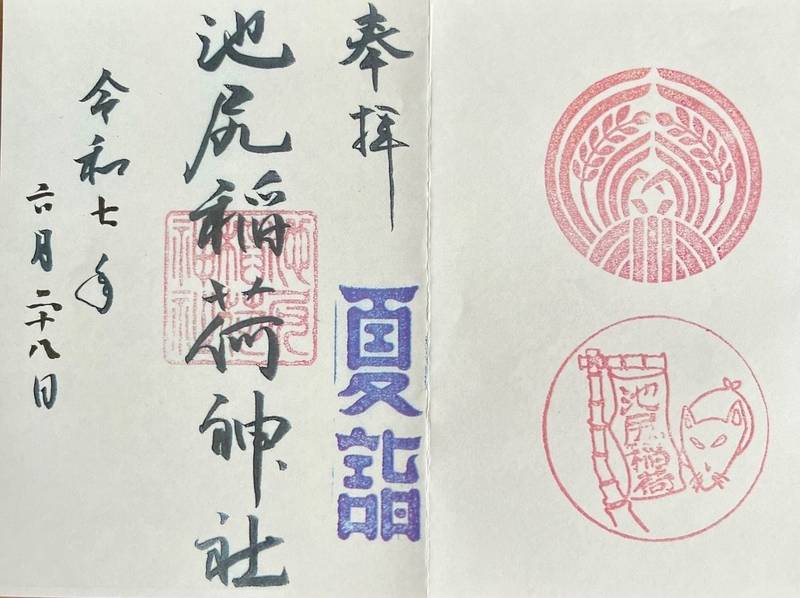 奉拝
夏詣
池尻稲荷神社
令和七年
六月二十八日
池尻稲荷